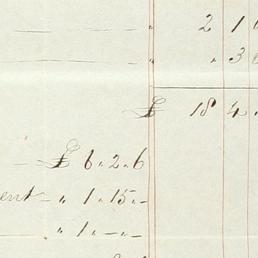 — — „ 2 1
„ „ 3
£ 18 4 „
— £ 6 „ 2 „ 6
ent — „ 1 „ 15 „ —
— „ 1 „ — „ —